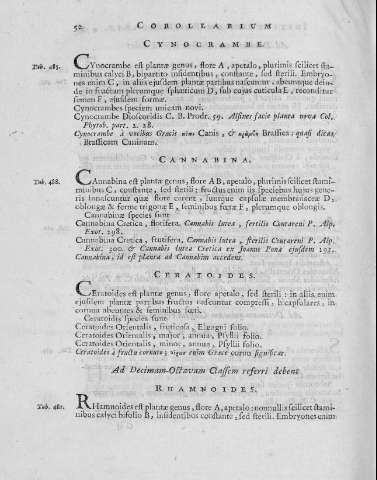 52 COROLLARIUM
CYNOCRAMBE.
Tab. 485. Cynocrambe est plantæ genus, flore A, apetalo, plurimis scilicet sta-
minibus calyci B, bipartito insidentibus, constante, sed sterili. Embryo-
nes enim C, in aliis ejusdem plantæ partibus nascuntur, abeuntque dein-
de in fructum plerumque sphæricum D, sub cujus cuticula E, reconditur
semen F, ejusdem formæ.
Cynocrambes speciem unicam novi.
Cynocrambe Dioscoridis C. B. Prodr. 59. Alsines facie planta nova Col.
Phytob. part. 2. 28.
Cynocrambe à vocibus Græcis Canis, & Brassica: quasi dicas
Brassicam Caninam.
CANNABINA.
Tab. 488. Cannabina est plantæ genus, flore AB, apetalo, plurimis scilicet stami-
nibus C, constante, sed sterili; fructus enim iis speciebus hujus gene-
ris innascuntur quæ flore carent, suntque capsulæ membranaceæ D,
oblongæ & forme trigonæ E, seminibus fœtæ F, plerumque oblongis.
Cannabinæ species sunt
Cannabina Cretica, florifera, Cannabis lutea, fertilis Contareni P. Alp.
Exot. 298.
Cannabina Cretica, fructifera, Cannabis lutea, sterilis Contareni P. Alp.
Exot. 300. & Cannabis lutea Cretica ex Joanne Pona ejusdem 292.
Cannabina, id est planta ad Cannabim accedens.
CERATOIDES.
Ceratoides est plantæ genus, flore apetalo, sed sterili: in aliis enim
ejusdem plantæ partibus fructus nascuntur compressi, bicapsulares, in
cornua abeuntes & seminibus fœti.
Ceratoidis species sunt
Ceratoides Orientalis, fruticosa, Elæagni folio.
Ceratoides Orientalis, major, annua, Psyllii folio.
Ceratoides Orientalis, minor, annua, Psyllii folio.
Ceratoides à fructu cornuto; enim Græcè cornu significat.
Ad Decimam-Octavam Classem referri debent
RHAMNOIDES.
Tab. 481. Rhamnoides est plantæ genus, flore A, apetalo: nonnullis scilicet stami-
nibus calyci bifolio B, insidentibus constante, sed sterili. Embryones enim